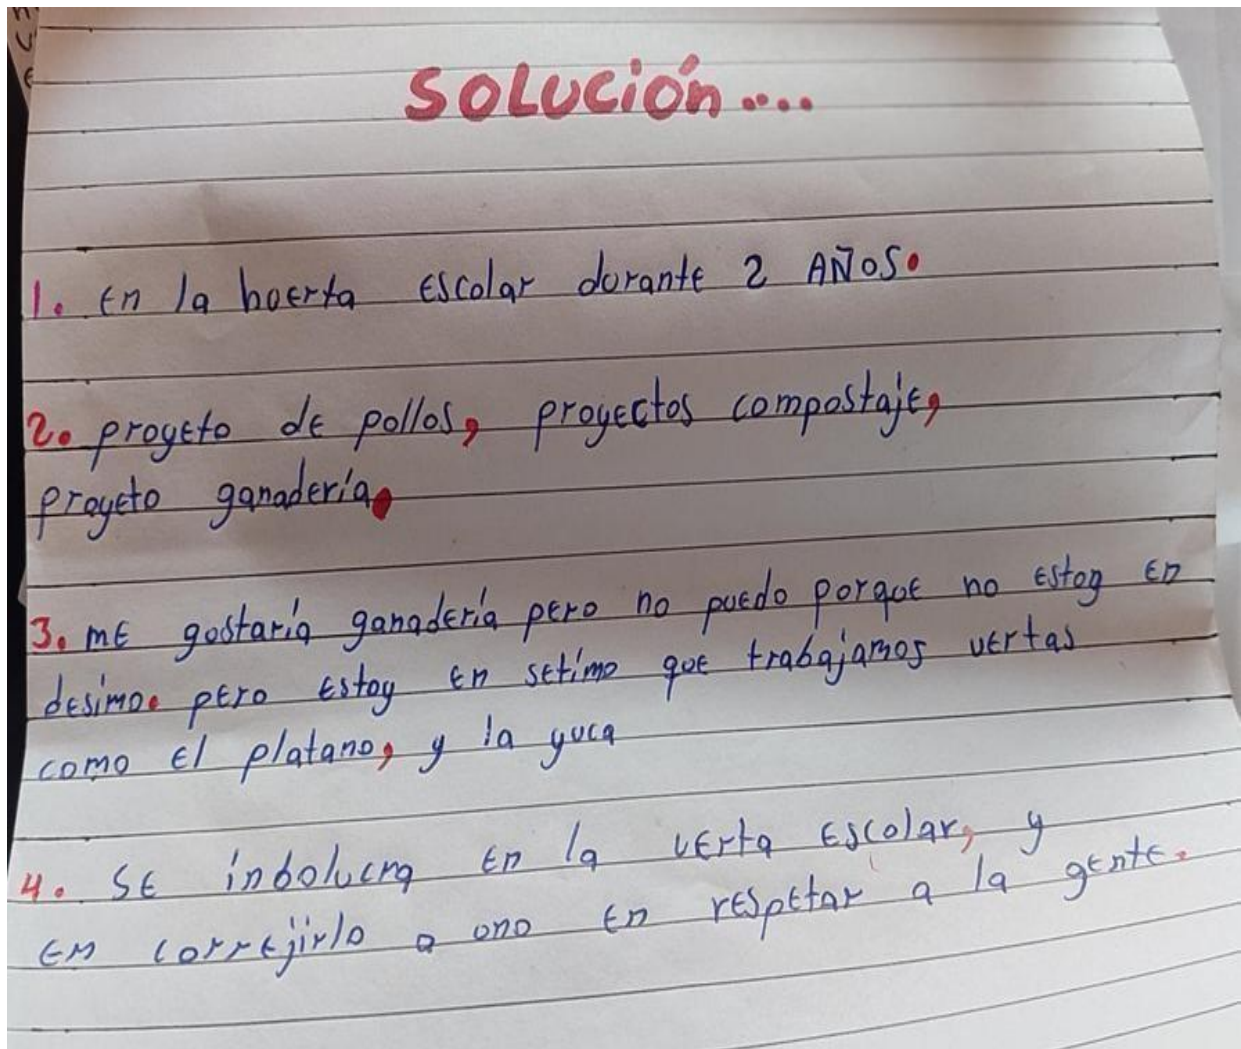 SOLUCión....
1. En la huerta Escolar durante 2 AÑOS.
2. proyeto de pollos, proyectos compostaje,
proyeto ganadería.
3. me gustaría ganadería pero no puedo porque no estoy en
desimo. pero estoy en setimo que trabajamos uertas
como el platano, y la yuca
4. Se inbolucra en la uerta escolar, y
en correjirlo a uno en respetar a la gente.